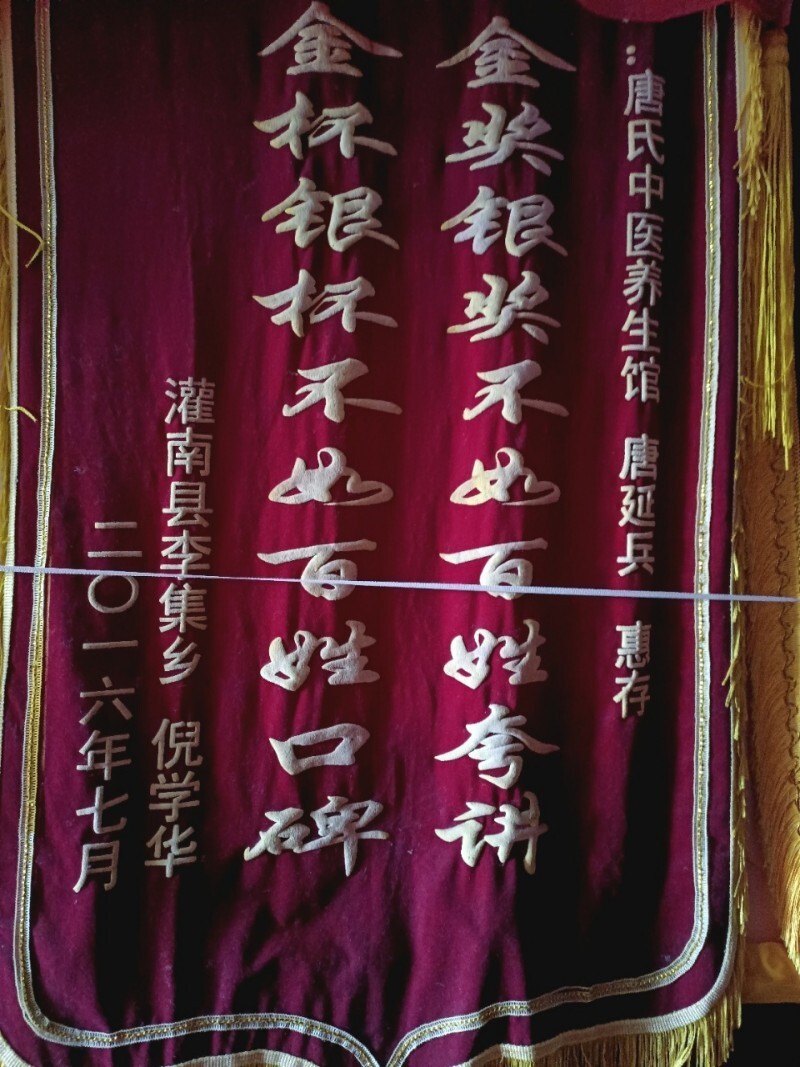 ：唐氏中医养生馆 唐延兵 惠存
金奖银奖不如百姓夸讲
金杯银杯不如百姓口碑
灌南县李集乡 倪学华
二〇一六年七月